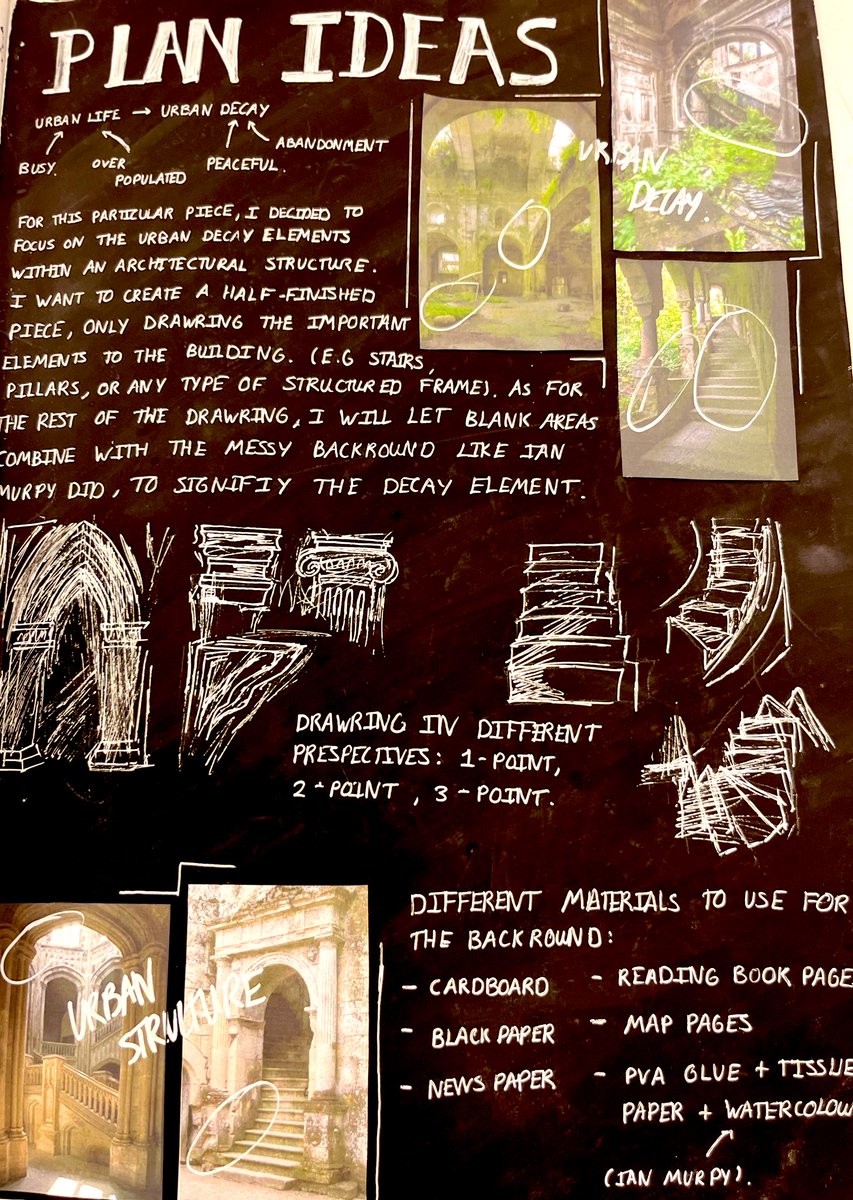 PLAN IDEAS
URBAN LIFE → URBAN DECAY
BUSY.
OVER
POPULATED
PEACEFUL.
ABANDONMENT
URBAN
DECAY.
FOR THIS PARTICULAR PIECE, I DECIDED TO
FOCUS ON THE URBAN DECAY ELEMENTS
WITHIN AN ARCHITECTURAL STRUCTURE.
I WANT TO CREATE A HALF-FINISHED
PIECE, ONLY DRAWRING THE IMPORTANT
ELEMENTS TO THE BUILDING. (E.G STAIRS,
PILLARS, OR ANY TYPE OF STRUCTURED FRAME). AS FOR
THE REST OF THE DRAWRING, I WILL LET BLANK AREAS
COMBINE WITH THE MESSY BACKROUND LIKE IAN
MURPY DID, TO SIGNIFIY THE DECAY ELEMENT.
DRAWRING IN DIFFERENT
PRESPECTIVES: 1-POINT,
2-POINT, 3-POINT.
URBAN
STRUCTURE
DIFFERENT MATERIALS TO USE FOR
THE BACKROUND:
- CARDBOARD
- BLACK PAPER
- NEWS PAPER
- READING BOOK PAGE
- MAP PAGES
- PVA GLUE + TISSUE
PAPER + WATERCOLOU
(IAN MURPY).